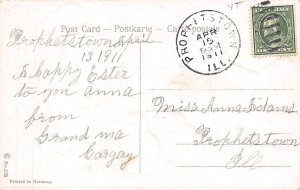 Post Card — Postkarte
Prophetstown April
13 1911
A happy Ester
to you anna
from
Grand ma
Cargay
PROPHETSTOWN
APR
15
9 AM
1911
ILL.
Miss Anna Adams
Prophetstown
Ill
Printed in Germany.